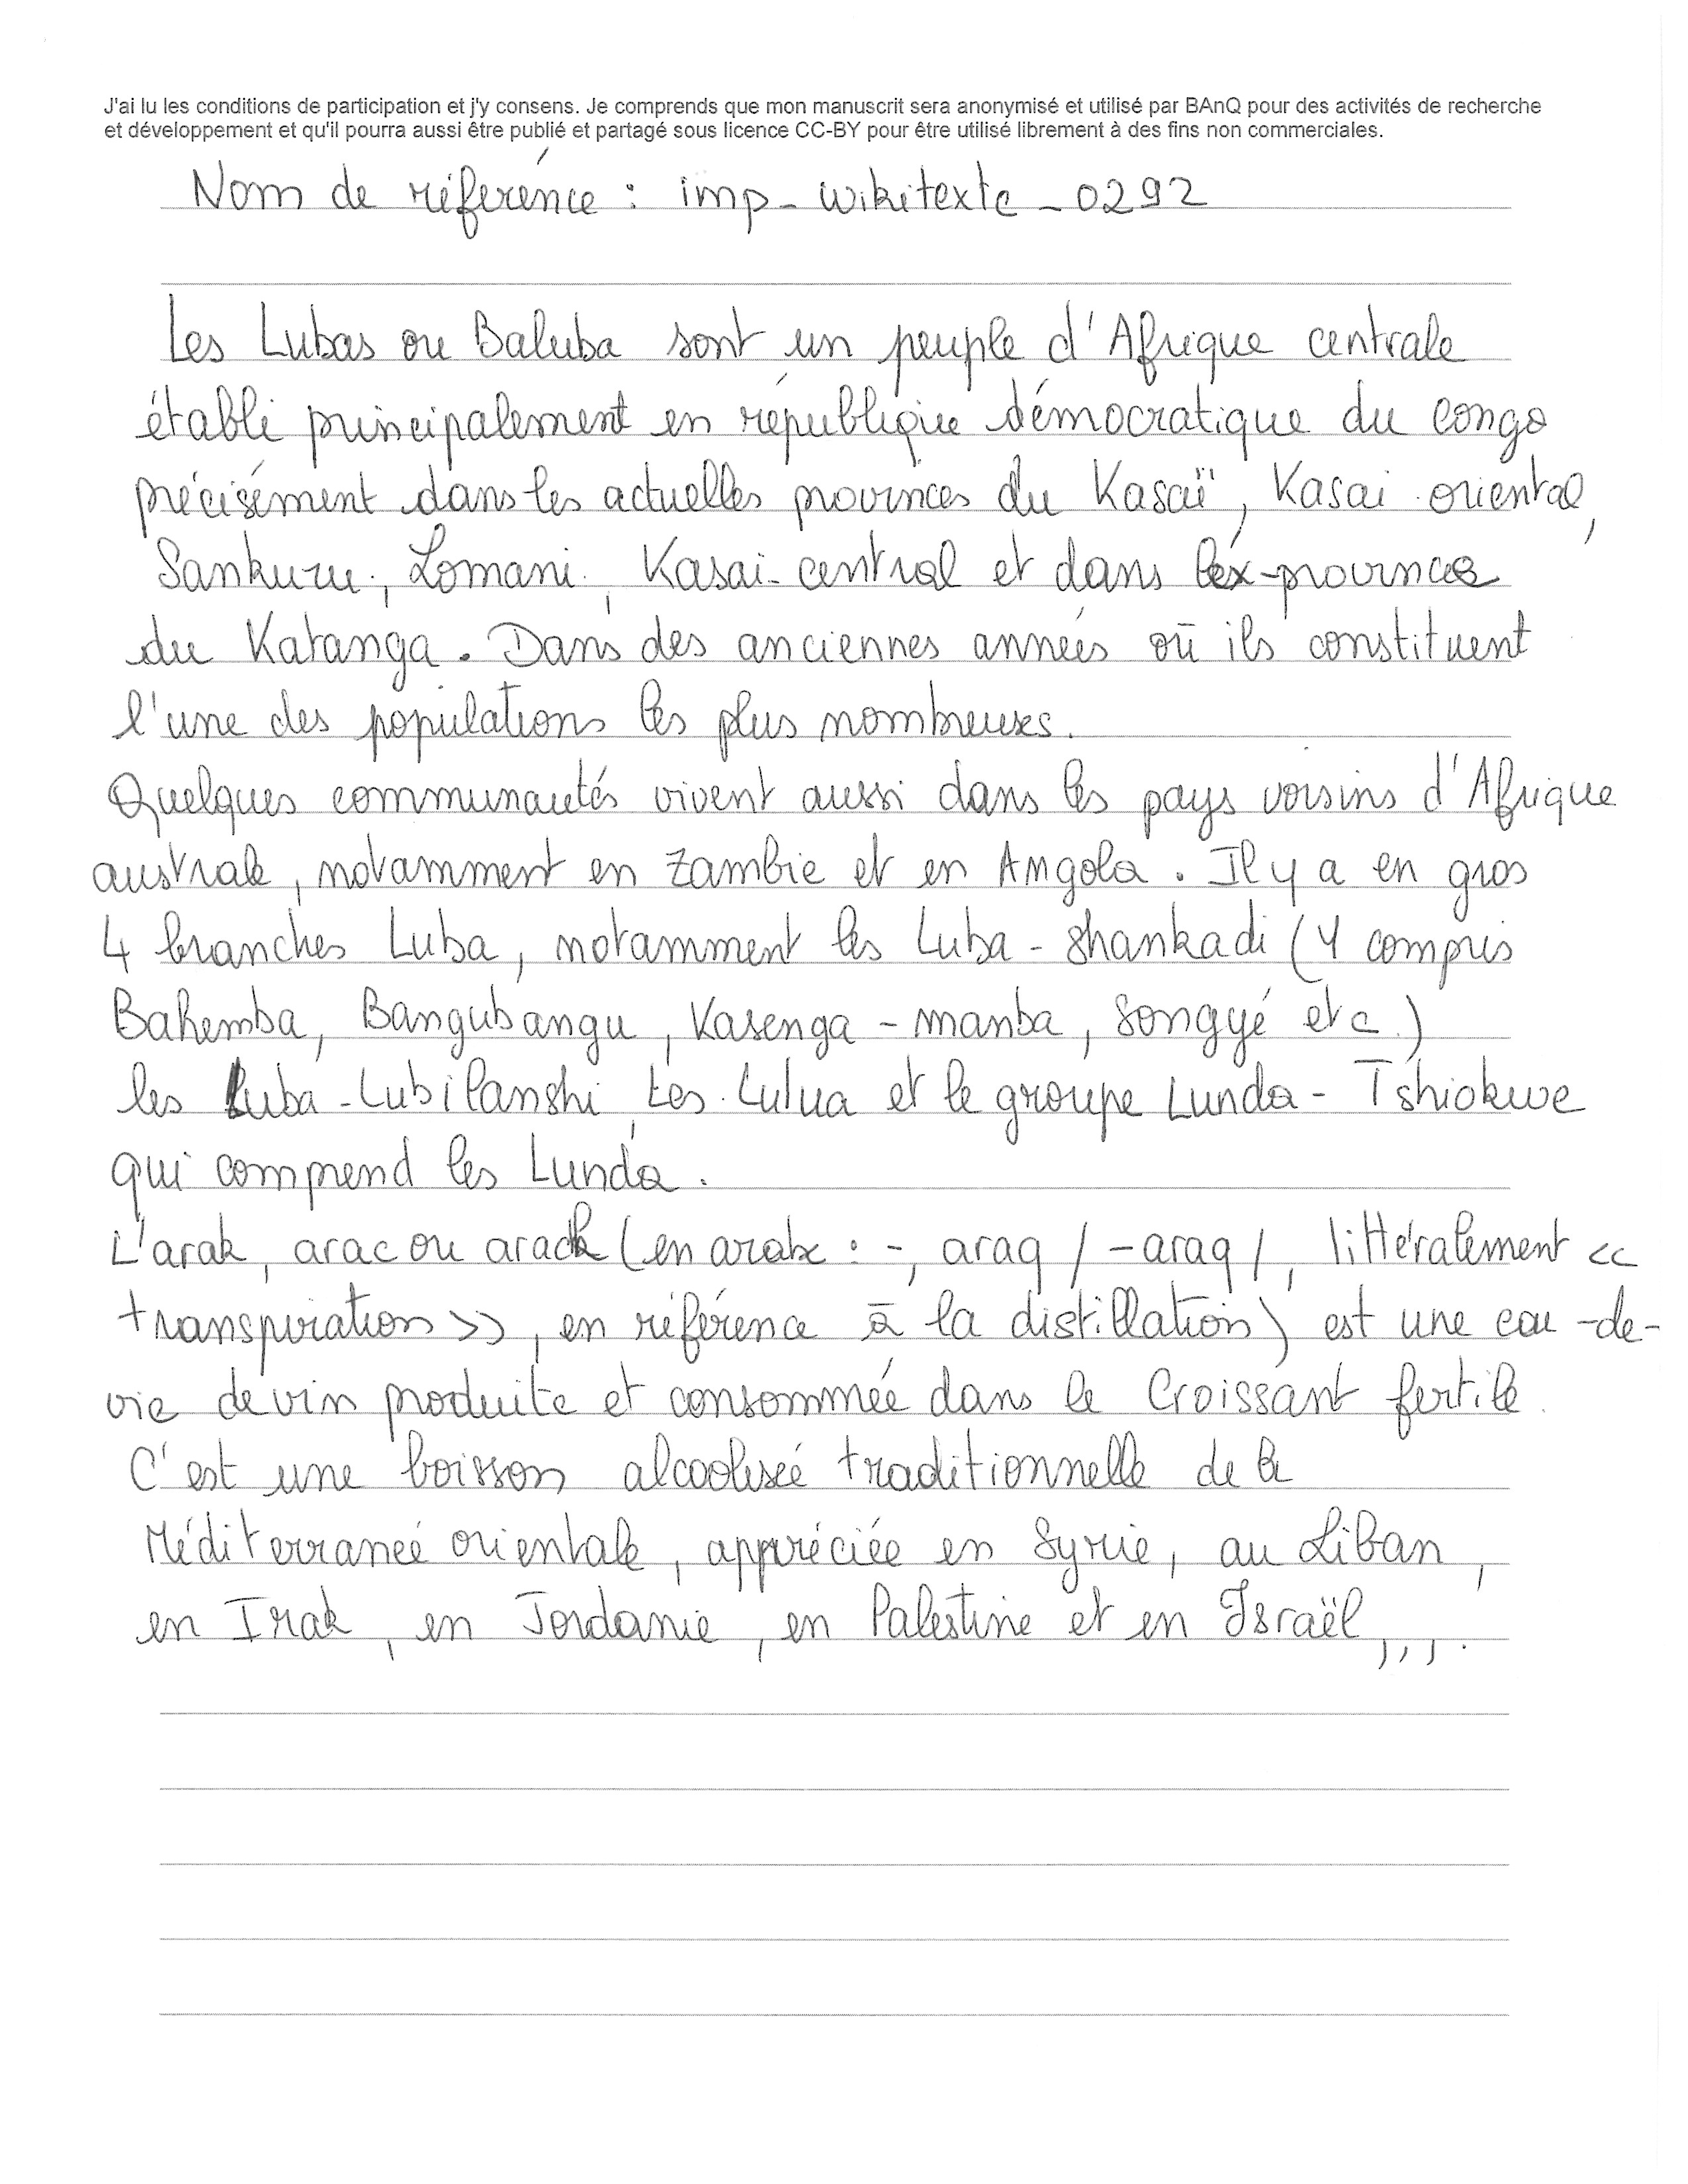 J'ai lu les conditions de participation et j'y consens. Je comprends que mon manuscrit sera anonymisé et utilisé par BAnQ pour des activités de recherche
et développement et qu'il pourra aussi être publié et partagé sous licence CC-BY pour être utilisé librement à des fins non commerciales.
Nom de référence : imp_wikitexte_0292
Les Lubas ou Baluba sont un peuple d'Afrique centrale
établi principalement en république démocratique du congo
précisément dans les actuelles provinces du Kasaï, Kasai oriental,
Sankuru, Lomani, Kasai-central et dans l'ex-province
du Katanga. Dans des anciennes années où ils constituent
l'une des populations les plus nombreuses.
Quelques communautés vivent aussi dans les pays voisins d'Afrique
australe, notamment en Zambie et en Angola. Il y a en gros
4 branches Luba, notamment les Luba-Shankadi (Y compris
Bahemba, Bangubangu, Kasenga-manba, Songyé etc.)
les Luba-Lubilanshi, Les Lulua et le groupe Lunda-Tshiokwe
qui comprend les Lunda.
L'arak, arac ou arack (en arabe : -, araq / -araq /, littéralement <<
transpiration >>, en référence à la distillation) est une eau-de-
vie de vin produite et consommée dans le Croissant fertile.
C'est une boisson alcoolisée traditionnelle de la
Méditerranée orientale, appréciée en Syrie, au Liban,
en Irak, en Jordanie, en Palestine et en Israël,,,.